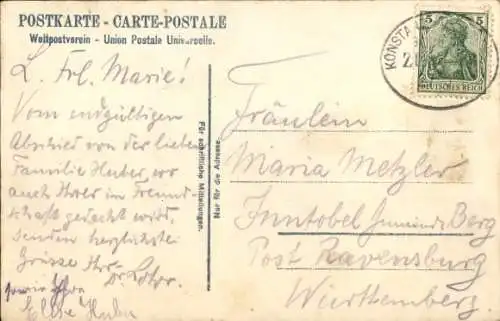 POSTKARTE - CARTE-POSTALE
Weltpostverein - Union Postale Universelle.
L. Frl. Marie!
Vom endgültigen
Abschied von der lieben
Familie Huber, wo
auch Ihrer in Freund-
schaft gedacht wird,
senden herzlichste
Grüsse Ihr
Elise Huber
Für schriftliche Mitteilungen.
Nur für die Adresse.
KONSTA
5 5
DEUTSCHES REICH
Fräulein
Maria Metzler
Inntobel Gemeinde Berg
Post Ravensburg
Württemberg.